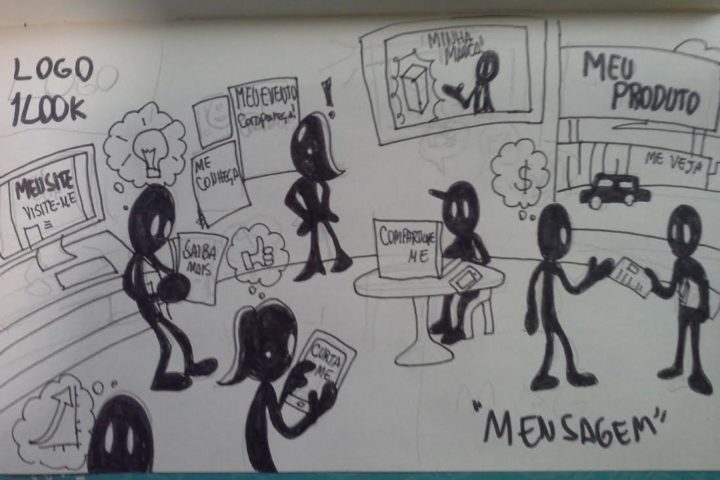 LOGO
1LOOK
MEU SITE
VISITE-ME
SAIBA
MAIS
ME
CONHEÇA
MEU EVENTO
Compareça!
!
MINHA
MARCA
MEU
PRODUTO
ME VEJA
COMPARTILHE
ME
$
CURTA
ME
"MENSAGEM"